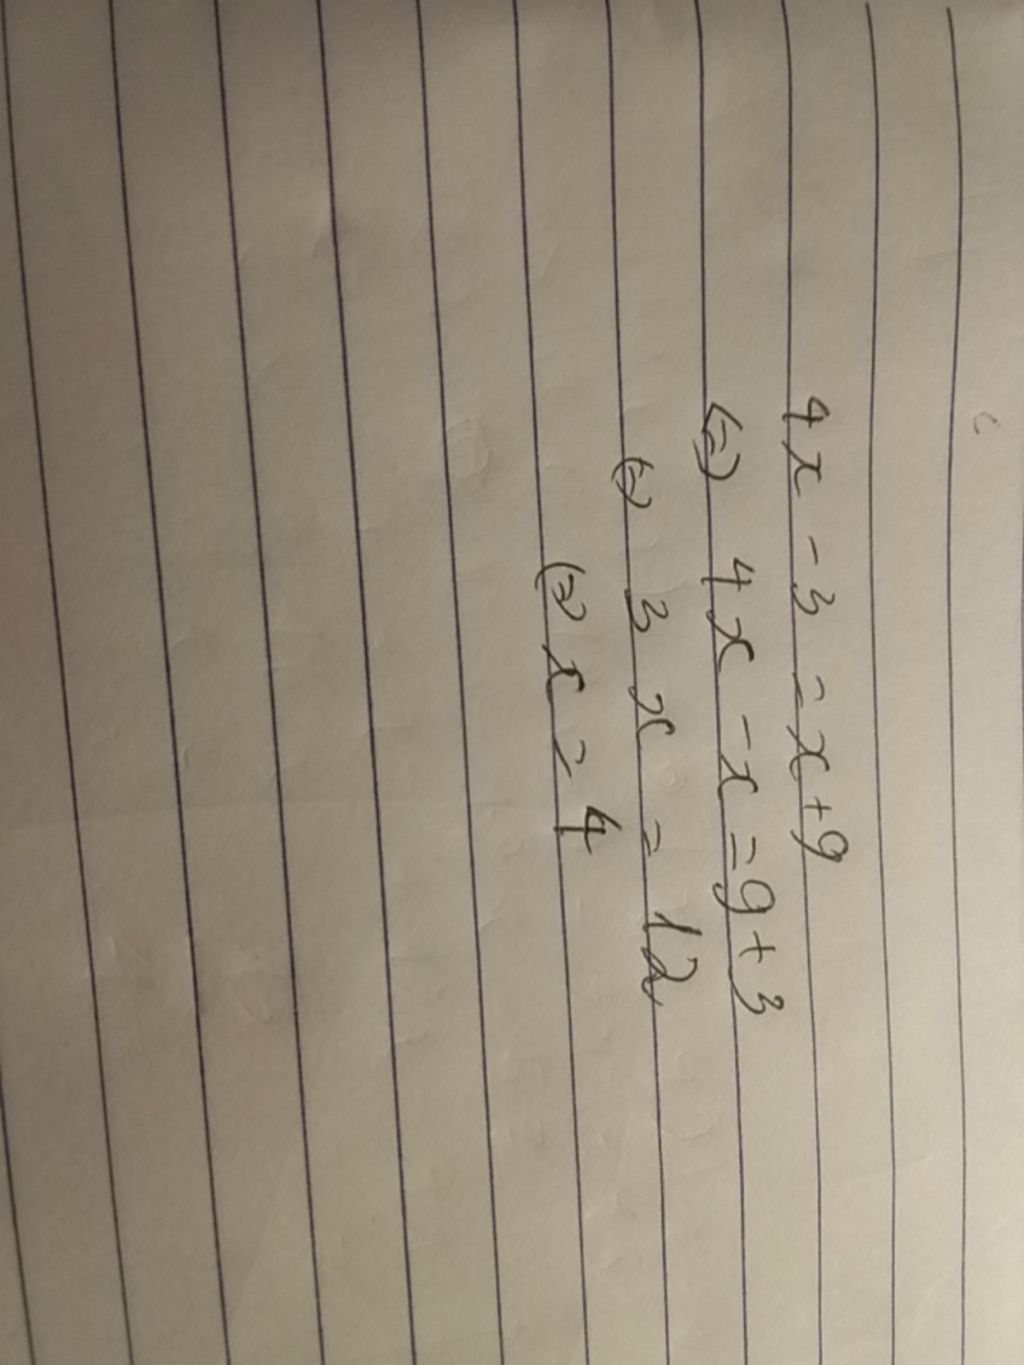 4x - 3 = x + 9
(=) 4x - x = 9 + 3
(=) 3x = 12
(=) x = 4